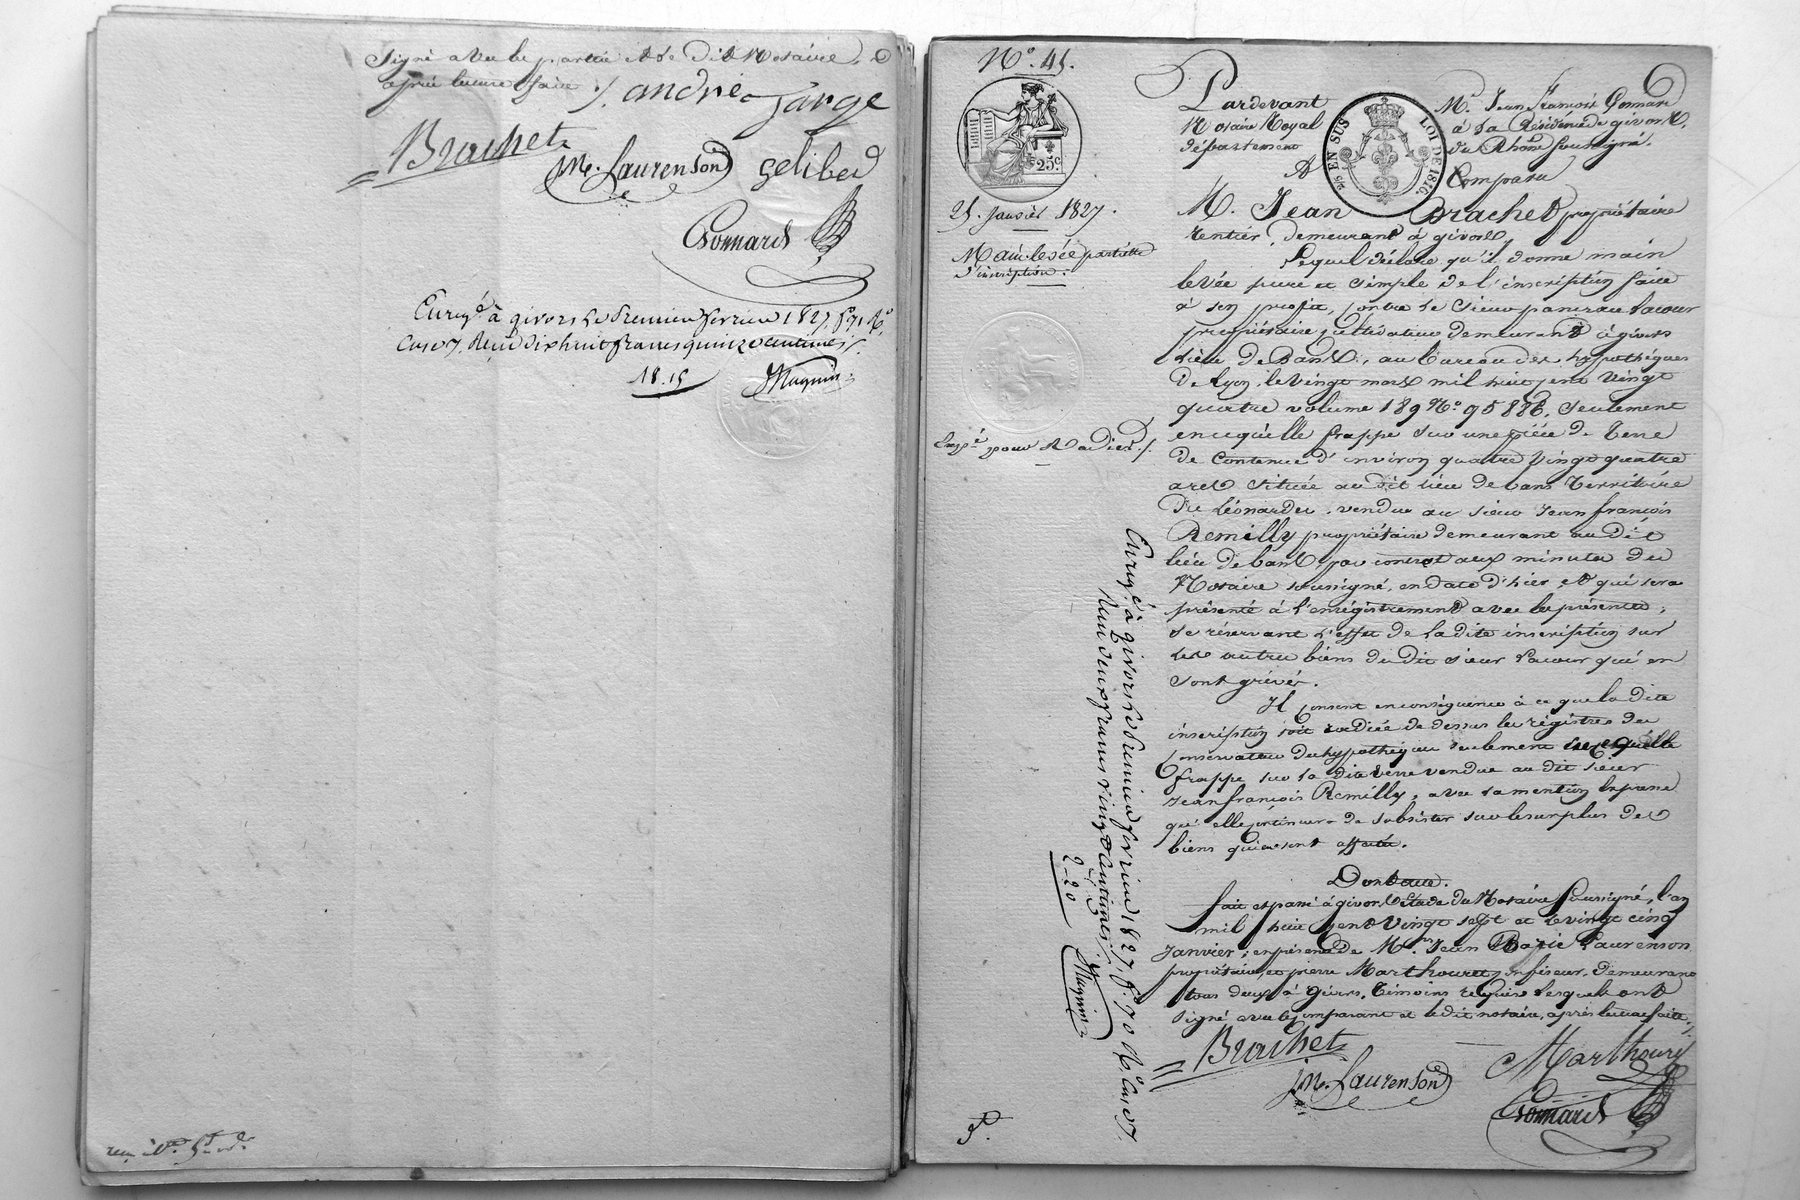 Signé avec les parties et le dit Notaire,
après lecture faite /.
andré farge
Brachet
JM. Laurenson gelibert
Gonnard
Enregé à givors le premier février 1827, fo 71 Ro
Case 7. Reçu dix huit francs quinze centimes /.
18.15 Magnin
No. 45.
25c.
25 Janvier 1827.
Main levée partielle
d'inscription.
Expé pour Radier /.
Pardevant Me. Jean François Gonnard
Notaire Royal à la Résidence de givors,
département du Rhône soussigné.
2/5 EN SUS LOI DE 1816.
A Comparu
M. Jean Brachet propriétaire
rentier, demeurant à givors,
Lequel déclare qu'il donne main
levée pure et simple de l'inscription faite
à son profit, contre le sieur pancrace Lacour
propriétaire cultivateur demeurant à givors
lieu de Bans, au bureau des hypothèques
de Lyon, le vingt mars mil huit cent vingt
quatre volume 189 No. 95 886, seulement
en ce qu'elle frappe sur une pièce de terre
de contenue d'environ quatre vingt quatre
ares située au dit lieu de bans territoire
du Léonardet, vendue au sieur Jean françois
Remilly propriétaire demeurant au dit
lieu de bans, par contrat aux minutes du
Notaire soussigné, en date d'hier et qui sera
présenté à l'enrégistrement avec les présentes,
se réservant l'effet de la dite inscription sur
les autres biens du dit sieur Lacour qui en
sont grévés.
Il consent en conséquence à ce que la dite
inscription soit radiée de dessus les régistres du
conservateur des hypothèques seulement en ce qu'elle
frappe sur la dite terre vendue au dit sieur
Jean françois Remilly, avec la mention expresse
qu'elle continuera de subsister sur le surplus des
biens qui en sont affectés.
Dont acte.
fait et passé à givors étude du Notaire Soussigné, l'an
mil huit cent vingt sept et le vingt cinq
Janvier, en présence de Mrs. Jean Marie Laurenson
propriétaire, et pierre Marthouret confiseur, demeurant
tous deux à givors, témoins requis lesquels ont
signé avec le comparant et le dit notaire, après lecture faite /.
Brachet
JM. Laurenson
Marthouret
Gonnard
Enregé à givors le premier février 1827, fo. 70 Ro. Case 7.
Reçu deux francs vingt centimes /.
2-20 Magnin